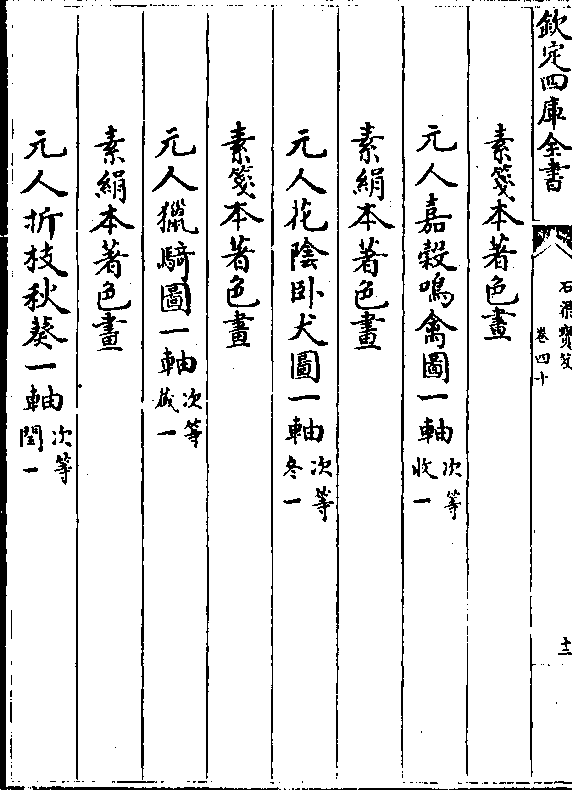 欽定四庫全書
石渠寳笈
卷四十
十三
素箋本著色畫
元人嘉穀鳴禽圖一軸次等收一
素絹本著色畫
元人花陰卧犬圖一軸次等冬一
素箋本著色畫
元人獵騎圖一軸次等藏一
素絹本著色畫
元人折枝秋葵一軸次等閏一